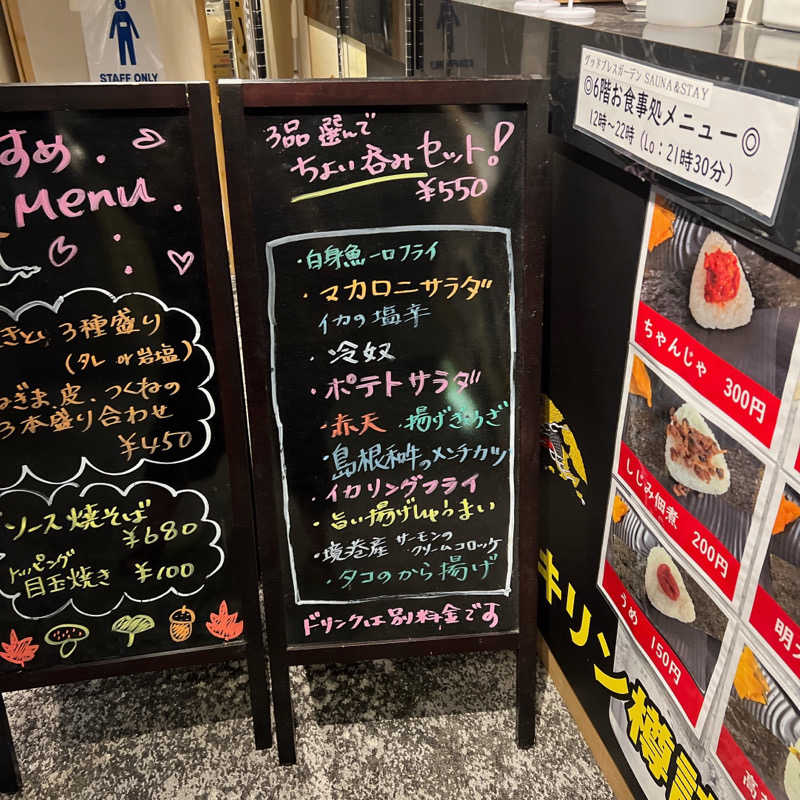 STAFF ONLY
すめ
Menu
3種盛り
(タレ or 岩塩)
ねぎま、皮、つくねの
3本盛り合わせ
¥450
ソース焼そば
¥680
トッピング
目玉焼き ¥100
3品選んで
ちょい呑みセット!
¥550
・白身魚一口フライ
・マカロニサラダ
イカの塩辛
・冷奴
・ポテトサラダ
・赤天 ・揚げぎょうざ
・島根和牛のメンチカツ
・イカリングフライ
・旨い揚げしゅうまい
・境港産 サーモンの
クリームコロッケ
・タコのから揚げ
ドリンクは別料金です
グッドブレスガーデン SAUNA&STAY
◎6階お食事処メニュー◎
12時~22時(Lo:21時30分)
ちゃんじゃ 300円
しじみ佃煮 200円
うめ 150円
明太
高
キリン樽詰